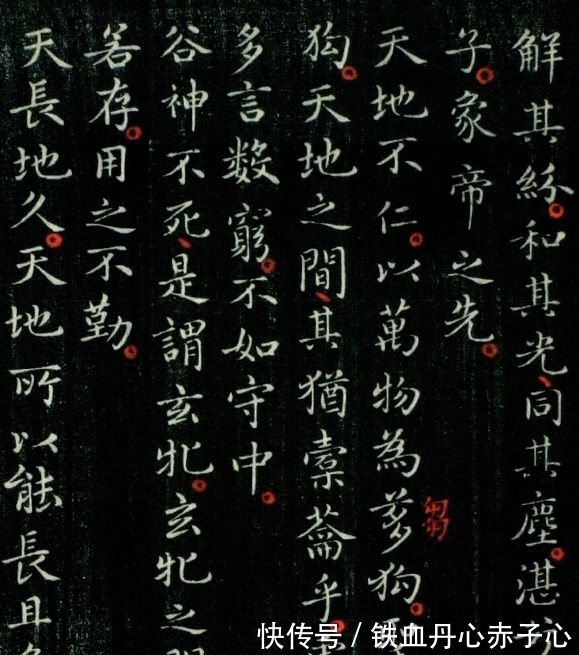 解其紛。和其光、同其塵。湛
子。象帝之先。
天地不仁。以萬物為芻狗。
芻
狗。天地之間、其猶橐籥乎。
多言數窮。不如守中。
谷神不死、是謂玄牝。玄牝之
若存。用之不勤。
天長地久。天地所以能長且
快传号 / 铁血丹心赤子心